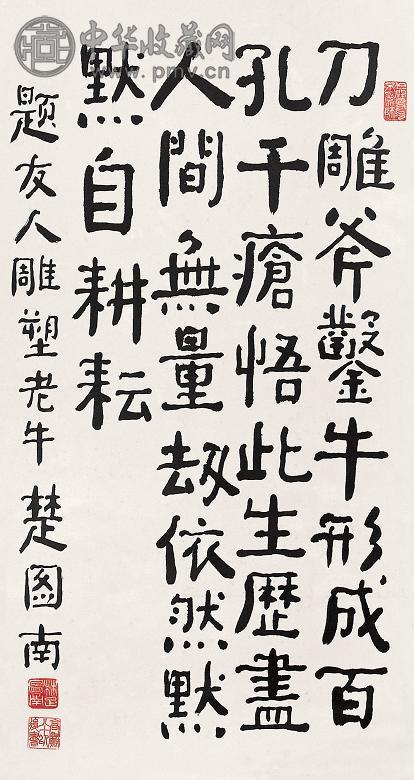 刀雕斧鑿牛形成百
孔千瘡悟此生歷盡
人間無量劫依然默
默自耕耘
题友人雕塑老牛 楚图南
中华收藏网
www.pmv.cn